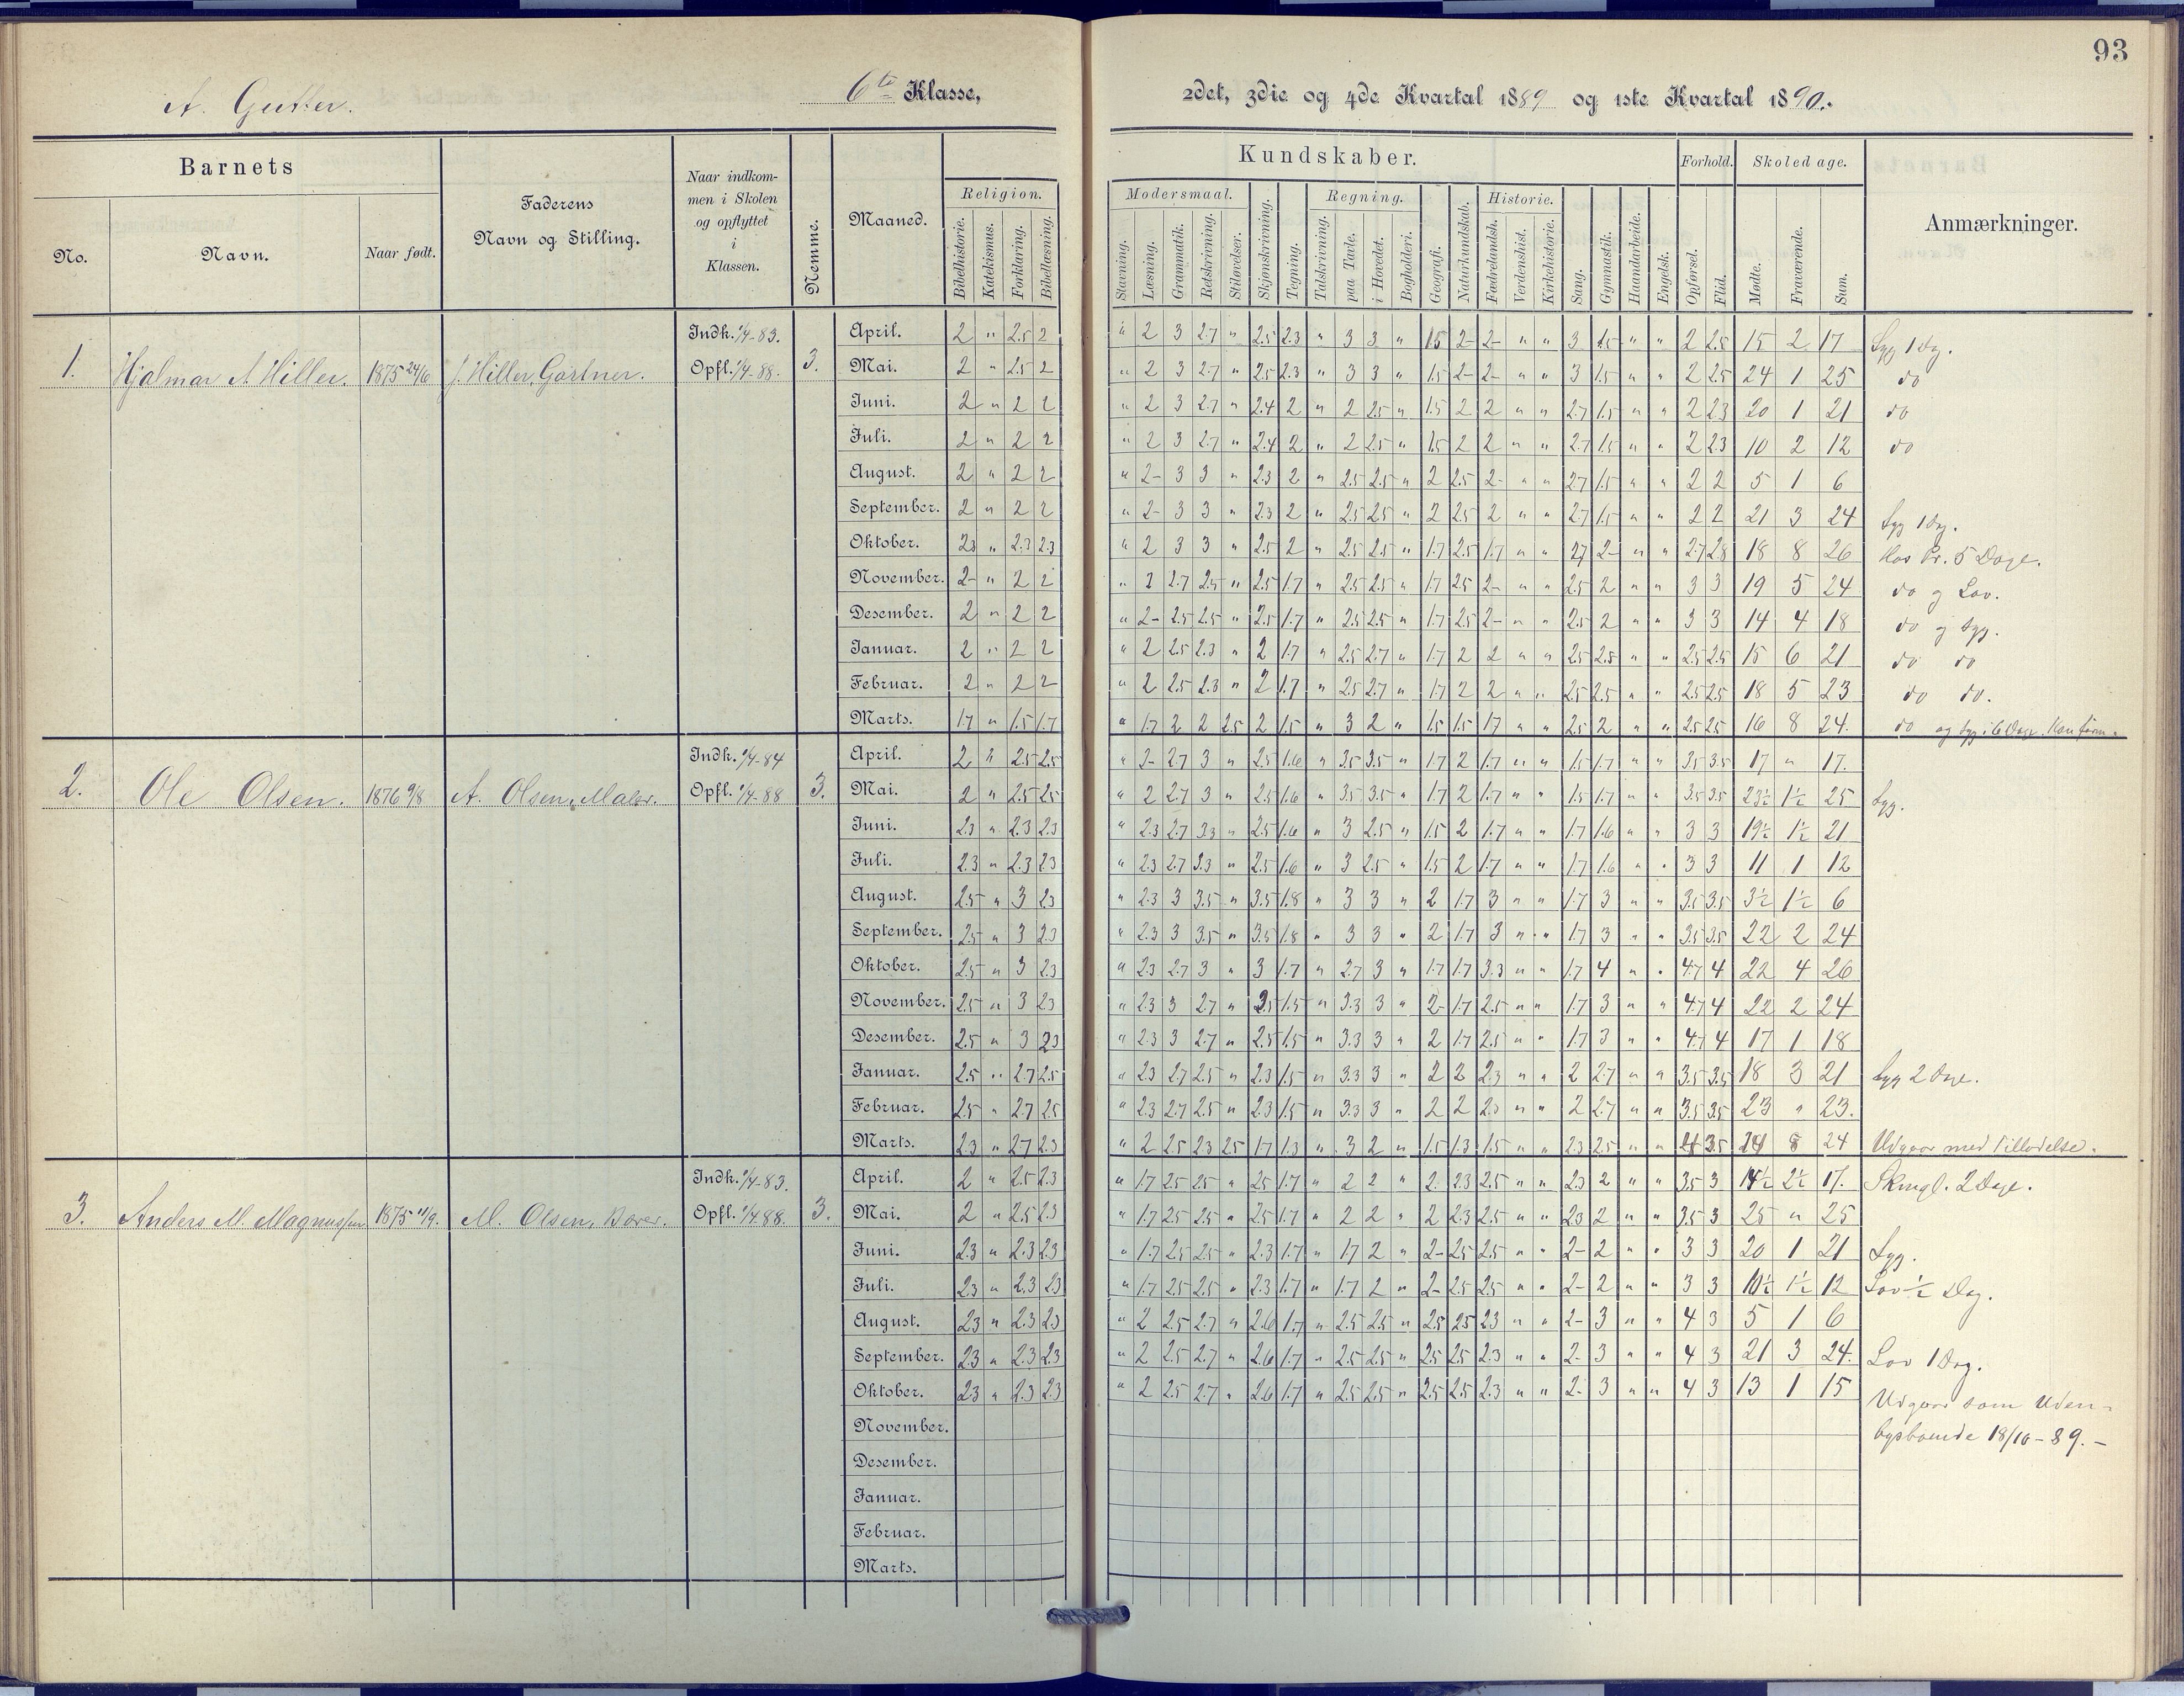 93
A. Gutter.
6te Klasse, 2det, 3die og 4de Kvartal 1889 og 1ste Kvartal 1890.
Barnets
No.
Navn.
Naar født.
Faderens
Navn og Stilling.
Naar indkom-
men i Skolen
og opflyttet
i
Klassen.
Nemme.
Maaned.
Kundskaber.
Religion.
Bibelhistorie. Katekismus. Forklaring. Bibellæsning.
Modersmaal.
Stavning. Læsning. Grammatik. Retskrivning. Stiløvelser.
Skjønskrivning. Tegning.
Regning.
Talskrivning. paa Tavle. i Hovedet. Bogholderi.
Geografi. Naturkundskab.
Historie.
Fædrelandsh. Verdenshist. Kirkehistorie.
Sang. Gymnastik. Haandarbeide. Engelsk.
Forhold.
Opførsel. Flid.
Skoledage.
Mødte. Fraværende. Sum.
Anmærkninger.
1. Hjalmar A. Hiller. 1875 24/6 J. Hiller, Gartner. Indk. 1/4-83. Opfl. 1/4-88. 3.
April. 2 " 2.5 2 " 2 3 2.7 " 2.5 2.3 " 3 3 " 1.5 2- 2- " " 3 1.5 " " 2 2.5 15 2 17 Syg 1 Dg.
Mai. 2 " 2.5 2 " 2 3 2.7 " 2.5 2.3 " 3 3 " 1.5 2- 2- " " 3 1.5 " " 2 2.5 24 1 25 do
Juni. 2 " 2 2 " 2 3 2.7 " 2.4 2 " 2 2.5 " 1.5 2 2 " " 2.7 1.5 " " 2 2.3 20 1 21 do
Juli. 2 " 2 2 " 2 3 2.7 " 2.4 2 " 2 2.5 " 1.5 2 2 " " 2.7 1.5 " " 2 2.3 10 2 12 do
August. 2 " 2 2 " 2- 3 3 " 2.3 2 " 2.5 2.5 " 2 2.5 2- " " 2.7 1.5 " " 2 2 5 1 6
September. 2 " 2 2 " 2- 3 3 " 2.3 2 " 2.5 2.5 " 2 2.5 2 " " 2.7 1.5 " " 2 2 21 3 24 Syg 1 Dg.
Oktober. 2.3 " 2.3 2.3 " 2 3 3 " 2.5 2 " 2.5 2.5 " 1.7 2.5 1.7 " " 2.7 2- " " 2.7 2.8 18 8 26 Hos Pr. 5 Dage.
November. 2- " 2 2 " 2 2.7 2.5 " 2.5 1.7 " 2.5 2.5 " 1.7 2.5 2- " " 2.5 2 " " 3 3 19 5 24 do og Lov.
Desember. 2 " 2 2 " 2- 2.5 2.5 " 2.5 1.7 " 2.5 2.5 " 1.7 2.5 2- " " 2.5 2 " " 3 3 14 4 18 do og Syg.
Januar. 2 " 2 2 " 2 2.5 2.3 " 2 1.7 " 2.5 2.7 " 1.7 2 2 " " 2.5 2.5 " " 2.5 2.5 15 6 21 do do
Februar. 2 " 2 2 " 2 2.5 2.3 " 2 1.7 " 2.5 2.7 " 1.7 2 2 " " 2.5 2.5 " " 2.5 2.5 18 5 23 do do.
Marts. 1.7 " 1.5 1.7 " 1.7 2 2 2.5 2 1.5 " 3 2 " 1.5 1.5 1.7 " " 2.5 2 " " 2.5 2.5 16 8 24. do og Syg i 6 Dage. Konfirm.
2. Ole Olsen. 1876 9/8 A. Olsen, Maler. Indk. 1/4-84 Opfl. 1/4-88 3.
April. 2 " 2.5 2.5 " 2- 2.7 3 " 2.5 1.6 " 3.5 3.5 " 1.7 2 1.7 " " 1.5 1.7 " " 3.5 3.5 17 " 17.
Mai. 2 " 2.5 2.5 " 2 2.7 3 " 2.5 1.6 " 3.5 3.5 " 1.7 2 1.7 " " 1.5 1.7 " " 3.5 3.5 23½ 1½ 25 Syg.
Juni. 2.3 " 2.3 2.3 " 2.3 2.7 3.3 " 2.5 1.6 " 3 2.5 " 1.5 2 1.7 " " 1.7 1.6 " " 3 3 19½ 1½ 21
Juli. 2.3 " 2.3 2.3 " 2.3 2.7 3.3 " 2.5 1.6 " 3 2.5 " 1.5 2 1.7 " " 1.7 1.6 " " 3 3 11 1 12
August. 2.5 " 3 2.3 " 2.3 3 3.5 " 3.5 1.8 " 3 3 " 2 1.7 3 " " 1.7 3 " " 3.5 3.5 3½ 1½ 6
September. 2.5 " 3 2.3 " 2.3 3 3.5 " 3.5 1.8 " 3 3 " 2 1.7 3 " " 1.7 3 " " 3.5 3.5 22 2 24
Oktober. 2.5 " 3 2.3 " 2.3 2.7 3 " 3 1.7 " 2.7 3 " 1.7 1.7 3.3 " " 1.7 4 " " 4.7 4 22 4 26
November. 2.5 " 3 2.3 " 2.3 3 2.7 " 2.5 1.5 " 3.3 3 " 2- 1.7 2.5 " " 1.7 3 " " 4.7 4 22 2 24
Desember. 2.5 " 3 2.3 " 2.3 3 2.7 " 2.5 1.5 " 3.3 3 " 2 1.7 2.5 " " 1.7 3 " " 4.7 4 17 1 18
Januar. 2.5 " 2.7 2.5 " 2.3 2.7 2.5 " 2.3 1.5 " 3.3 3 " 2 2 2.3 " " 2 2.7 " " 3.5 3.5 18 3 21 Syg 2 Dge.
Februar. 2.5 " 2.7 2.5 " 2.3 2.7 2.5 " 2.3 1.5 " 3.3 3 " 2 2 2.3 " " 2 2.7 " " 3.5 3.5 23 " 23.
Marts. 2.3 " 2.7 2.3 " 2 2.5 2.3 2.5 1.7 1.3 " 3 2 " 1.5 1.3 1.5 " " 2.3 2.5 " " 4 3.5 24 Udgaar med Tilladelse.
3. Anders M. Magnussen 1875 11/9. M. Olsen, Borer. Indk. 1/4-83. Opfl. 1/4 88. 3.
April. 2 " 2.5 2.3 " 1.7 2.5 2.5 " 2.5 1.7 " 2 2 " 2 2.3 2.5 " " 2.3 2 " " 3.5 3 14½ 2½ 17. Skrugl. 2 Dage.
Mai. 2 " 2.5 2.3 " 1.7 2.5 2.5 " 2.5 1.7 " 2 2 " 2 2.3 2.5 " " 2.3 2 " " 3.5 3 25 " 25
Juni. 2.3 " 2.3 2.3 " 1.7 2.5 2.5 " 2.3 1.7 " 1.7 2 " 2- 2.5 2.5 " " 2- 2 " " 3 3 20 1 21 Syg.
Juli. 2.3 " 2.3 2.3 " 1.7 2.5 2.5 " 2.3 1.7 " 1.7 2 " 2- 2.5 2.5 " " 2- 2 " " 3 3 10½ 1½ 12 Lov ½ Dag.
August. 2.3 " 2.3 2.3 " 2 2.5 2.7 " 2.6 1.7 " 2.5 2.5 " 2.5 2.5 2.3 " " 2- 3 " " 4 3 5 1 6
September. 2.3 " 2.3 2.3 " 2 2.5 2.7 " 2.6 1.7 " 2.5 2.5 " 2.5 2.5 2.3 " " 2- 3 " " 4 3 21 3 24. Lov 1 Dag.
Oktober. 2.3 " 2.3 2.3 " 2 2.5 2.7 " 2.6 1.7 " 2.5 2.5 " 2.5 2.5 2.3 " " 2- 3 " " 4 3 13 1 15 Udgaar som Uden-
November. bysboende 18/10-89.-
Desember.
Januar.
Februar.
Marts.